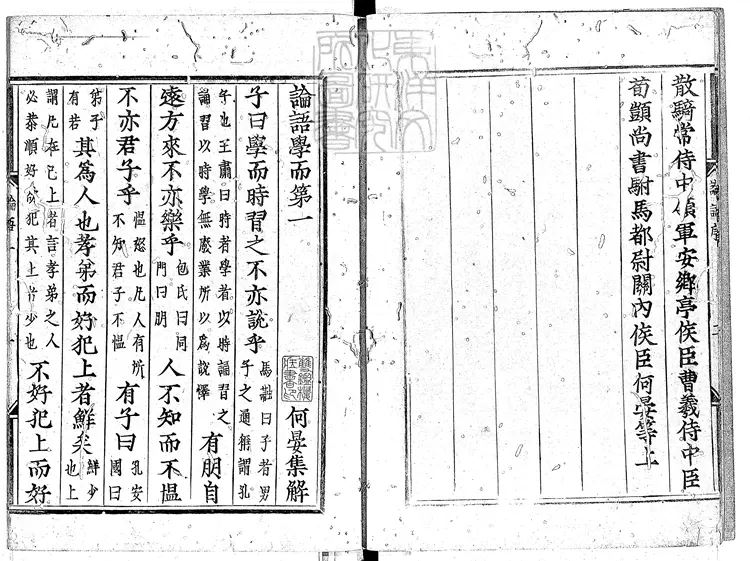 散騎常侍中領軍安鄉亭侯臣曹羲侍中臣
荀顗尚書駙馬都尉關內侯臣何晏等上
論語序 二
東洋文
化研究
所圖書
論語學而第一 何晏集解
子曰學而時習之不亦說乎 馬融曰子者男子之通稱謂孔
子也王肅曰時者學者以時誦習之誦習以時學無廢業所以爲說懌 有朋自
遠方來不亦樂乎 包氏曰同門曰朋 人不知而不慍
不亦君子乎 慍怒也凡人有所不知君子不慍 有子曰 孔安國曰
弟子有若 其爲人也孝弟而好犯上者鮮矣 鮮少也上
謂凡在己上者言孝弟之人必恭順好欲犯其上者少也 不好犯上而好
論語一 一